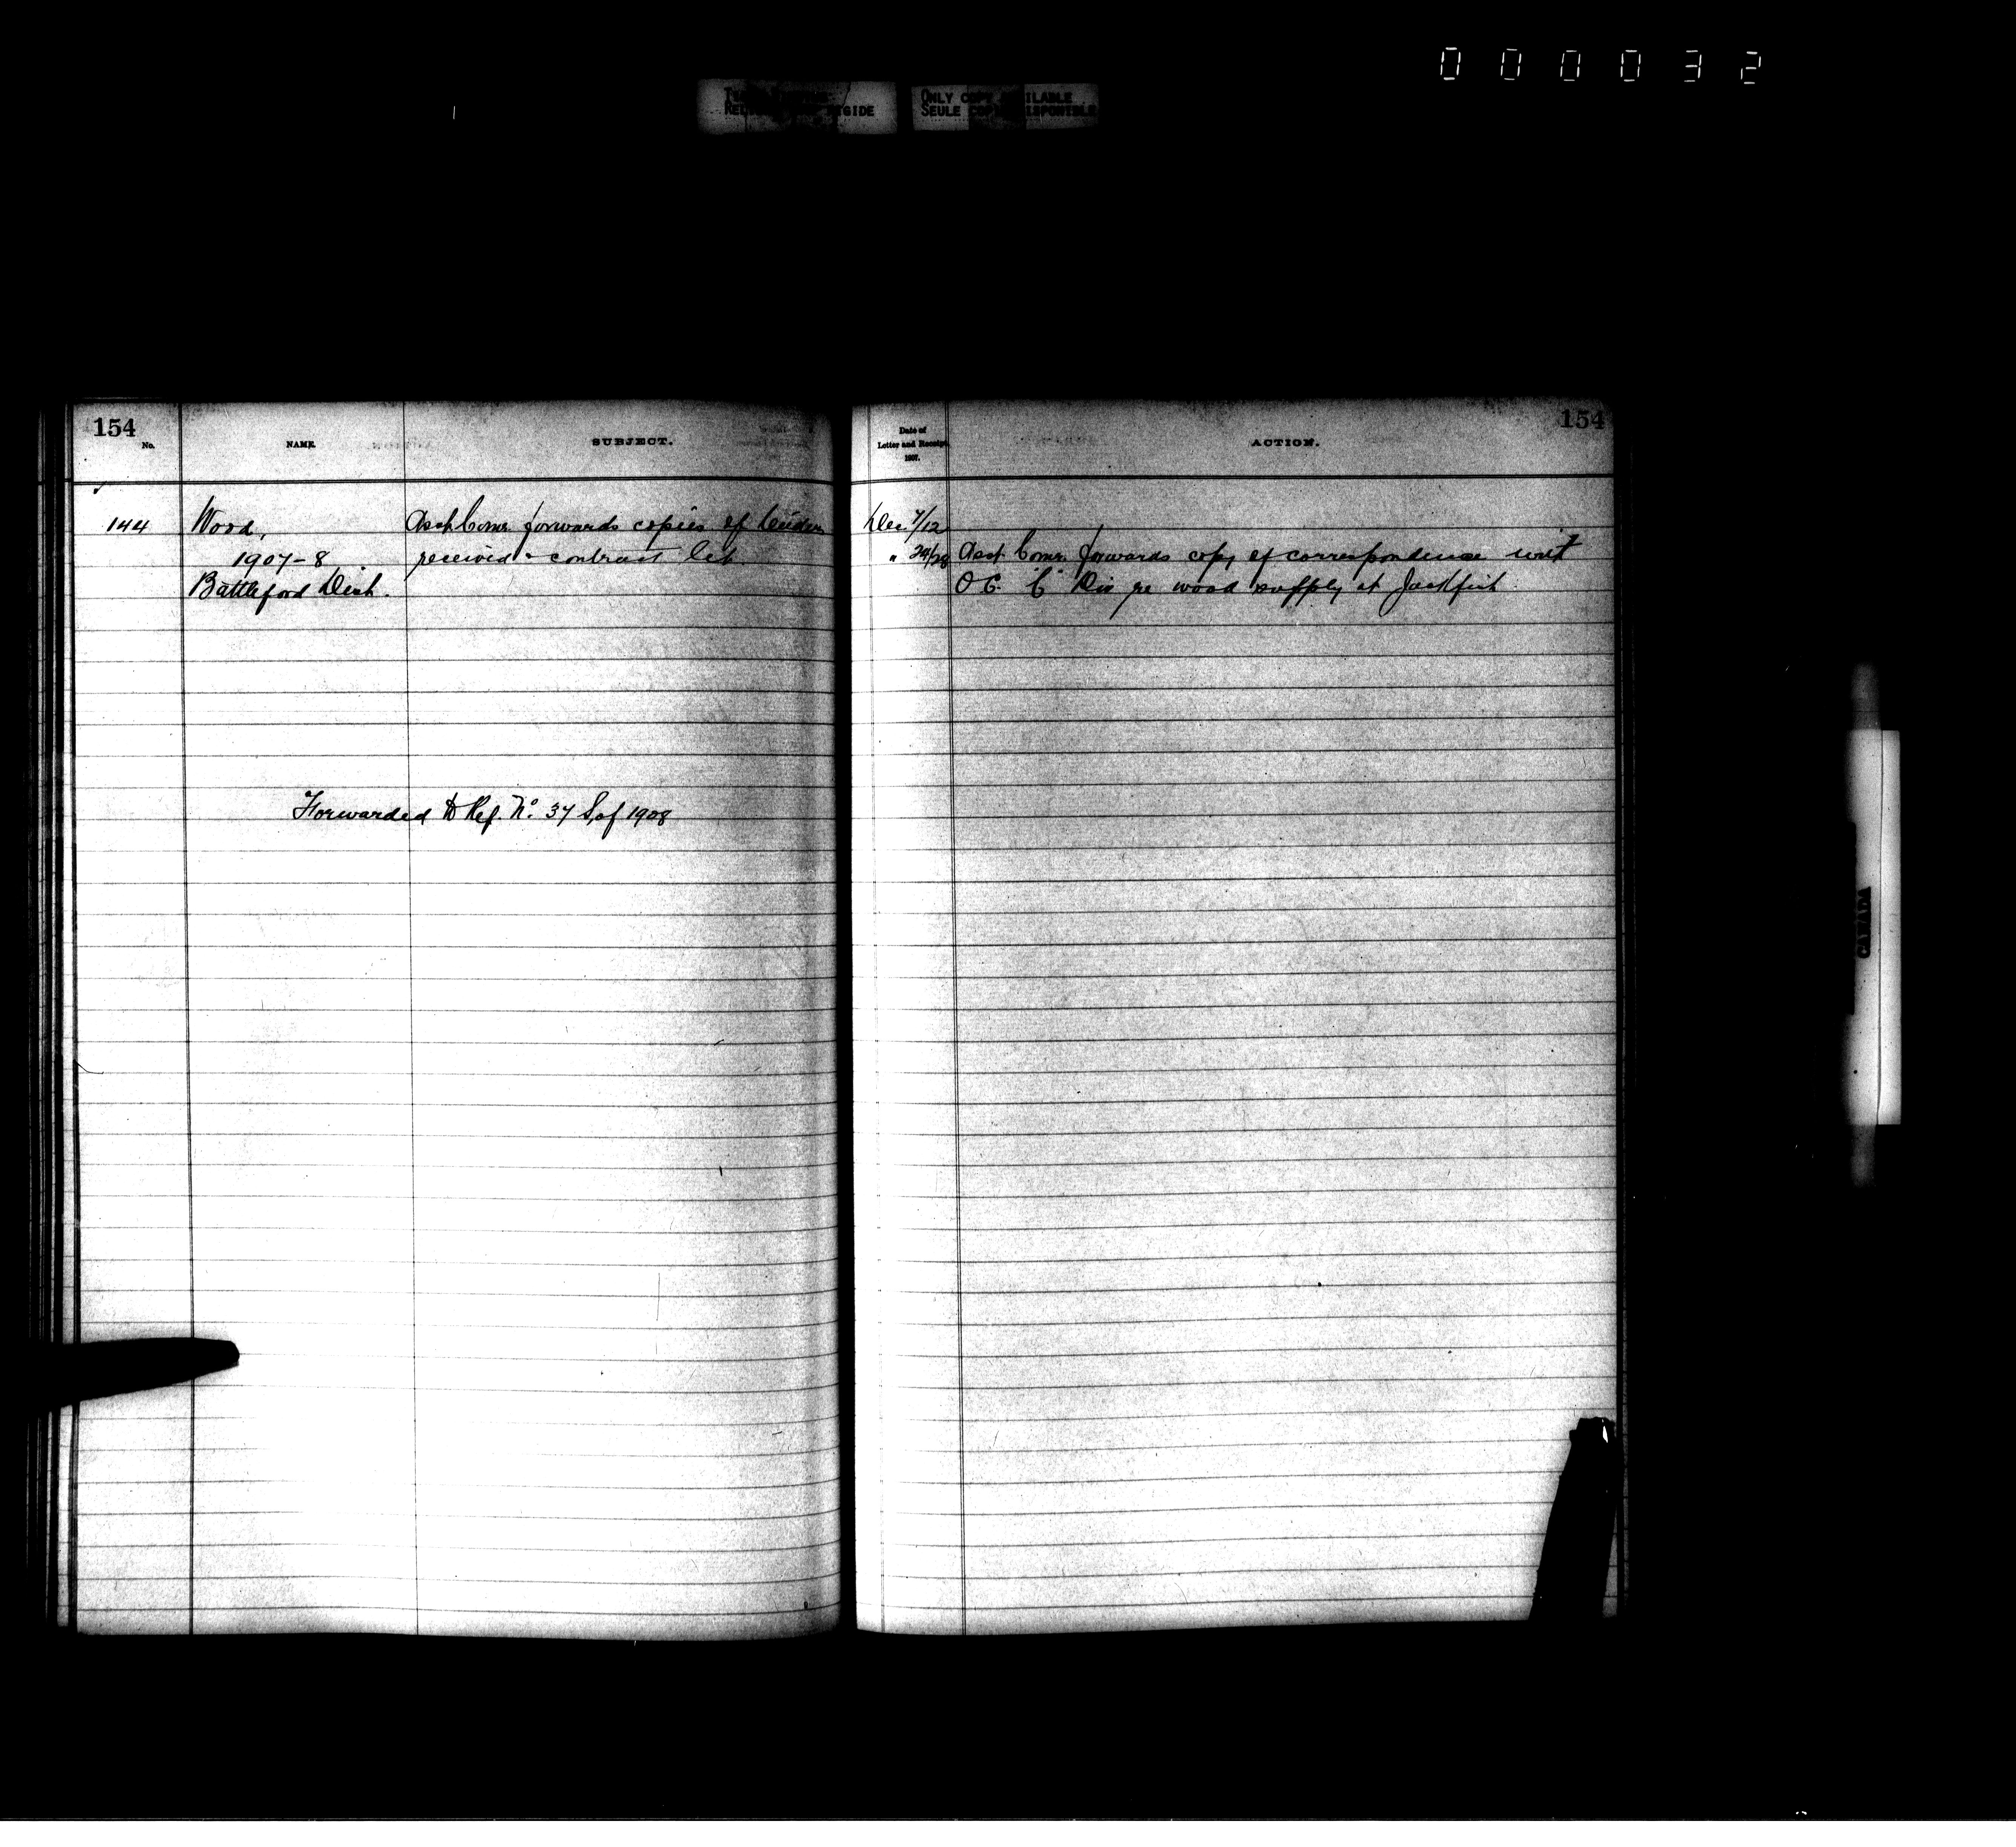 000032
ONLY COPY AVAILABLE
SEULE COPIE DISPONIBLE
154
No.
NAME.
SUBJECT.
144
Wood,
1907-8
Battleford Dist.
Asst Comr. forwards copies of tenders
received & contract let.
Forwarded to Ref. No. 37 S, of 1908
154
Date of
Letter and Receipt,
1907.
ACTION.
Dec 7/12
" 24/28 Asst Comr. forwards copy of correspondence with
O.C. "C" Div re wood supply at Jackfish.